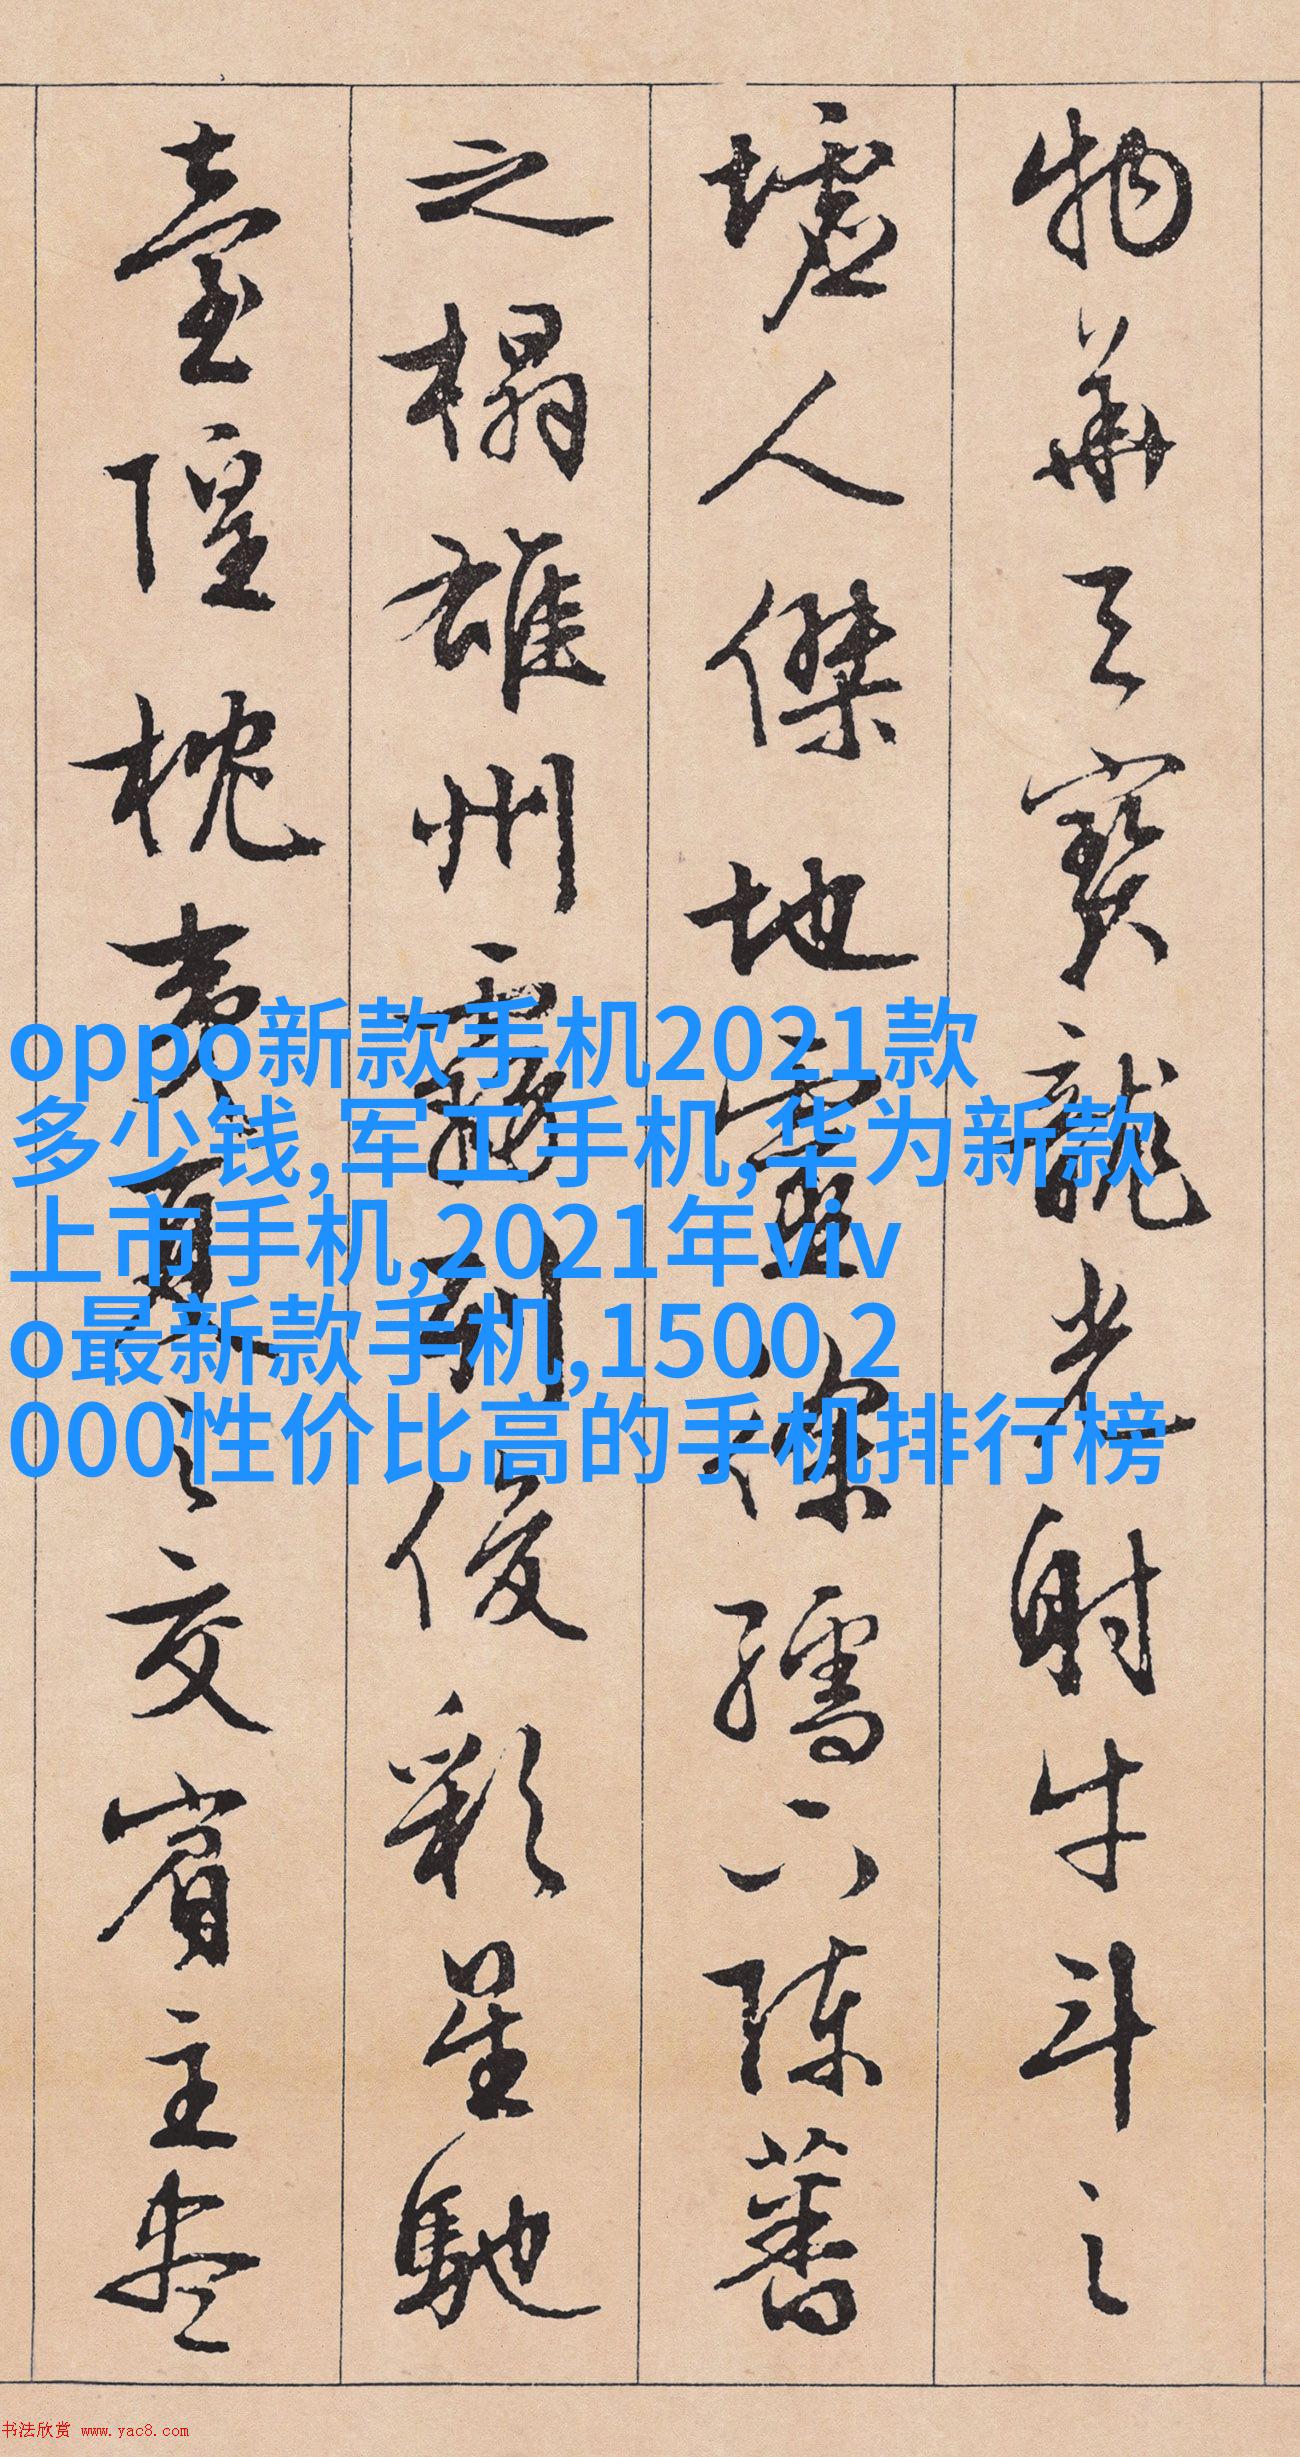 物华天宝龍光射牛斗之
墟人傑地靈徐孺下陈蕃
之榻雄州霧列俊彩星馳
臺隍枕夷夏之交賓主盡
oppo新款手机2021款
多少钱,军工手机,华为新款
上市手机,2021年viv
o最新款手机,1500 2
000性价比高的手机排行榜
书法欣赏 www.yac8.com